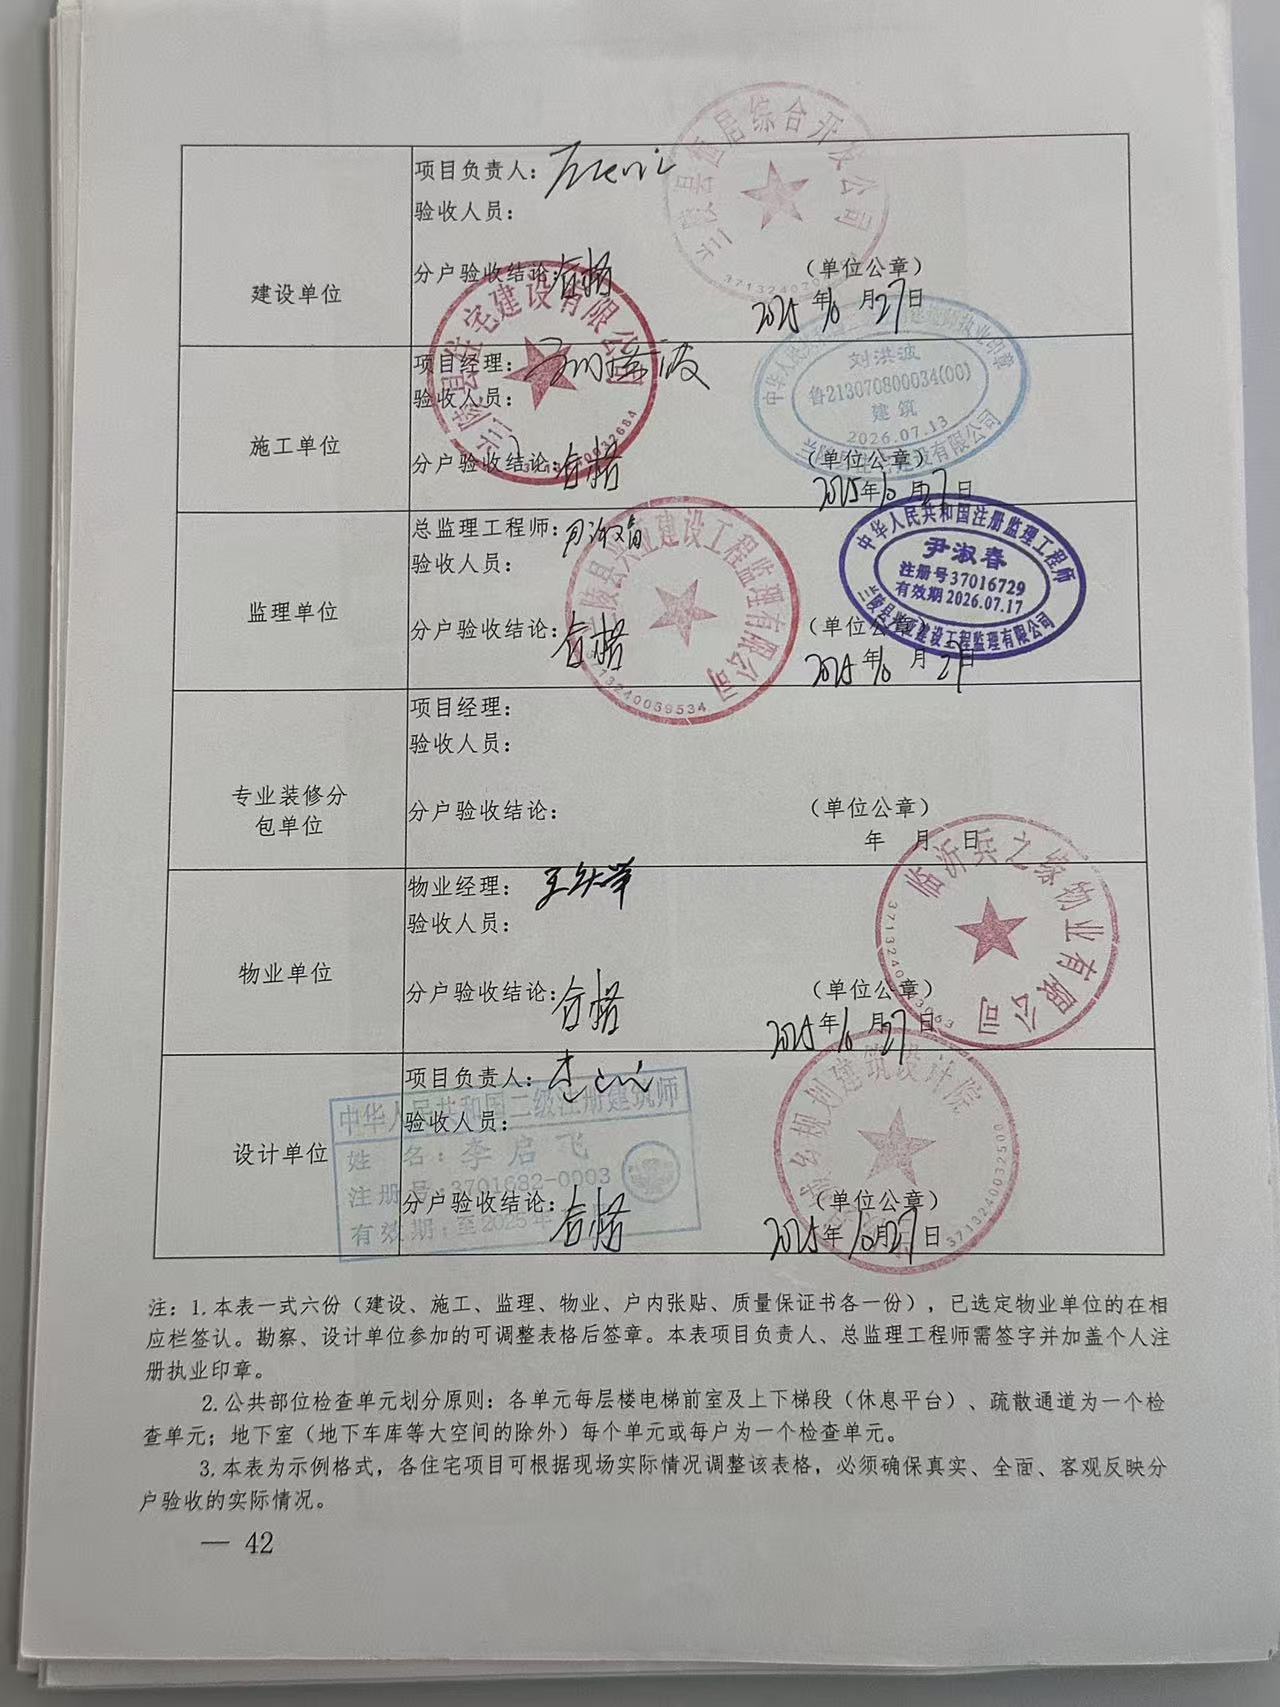 项目负责人：
验收人员：
分户验收结论：合格
建设单位
（单位公章）
2025年10月27日
综合开发公司
项目经理：
验收人员：
施工单位
分户验收结论：合格
（单位公章）
2025年10月27日
住宅建设有限公司
刘洪波
鲁213070800034(00)
建筑
2026.07.13
总监理工程师：
验收人员：
监理单位
分户验收结论：合格
（单位公章）
2025年10月27日
兰陵县兴业建设工程监理有限公司
中华人民共和国注册监理工程师
尹淑春
注册号37016729
有效期2026.07.17
兰陵县兴业建设工程监理有限公司
项目经理：
验收人员：
专业装修分
包单位
分户验收结论：
（单位公章）
年 月 日
物业经理：
验收人员：
物业单位
分户验收结论：合格
（单位公章）
2025年10月27日
临沂兵之缘物业有限公司
项目负责人：
验收人员：
设计单位
分户验收结论：合格
（单位公章）
2025年10月27日
规划建筑设计院
3713240032500
中华人民共和国二级注册建筑师
姓 名：李启飞
注册号：3701682-0003
有效期：至2025年
注：1.本表一式六份（建设、施工、监理、物业、户内张贴、质量保证书各一份），已选定物业单位的在相
应栏签认。勘察、设计单位参加的可调整表格后签章。本表项目负责人、总监理工程师需签字并加盖个人注
册执业印章。
2.公共部位检查单元划分原则：各单元每层楼电梯前室及上下梯段（休息平台）、疏散通道为一个检
查单元；地下室（地下车库等大空间的除外）每个单元或每户为一个检查单元。
3.本表为示例格式，各住宅项目可根据现场实际情况调整该表格，必须确保真实、全面、客观反映分
户验收的实际情况。
— 42